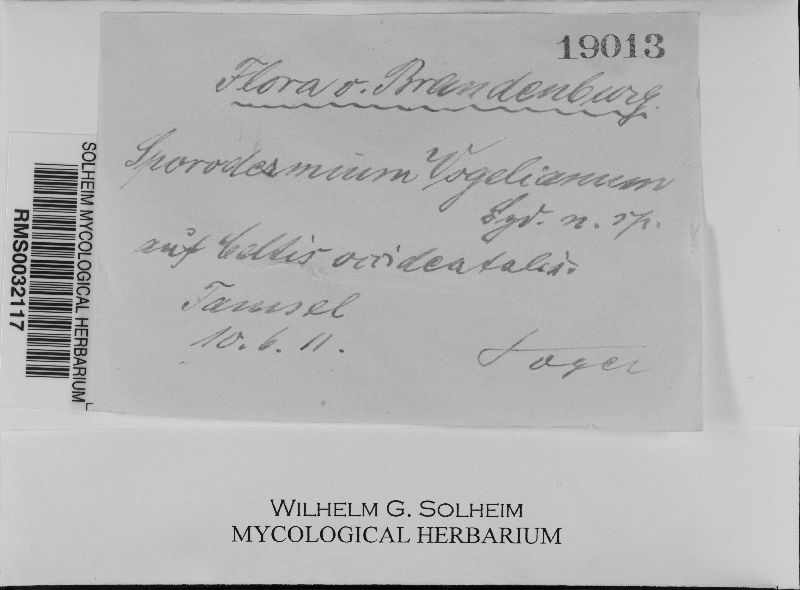 19013
Flora v. Brandenburg.
Sporodesmium Vogelianum
Syd. n. sp.
auf Celtis occidentalis.
Tamsel
10. 6. 11.
Vogel
SOLHEIM MYCOLOGICAL HERBARIUM
RMS0032117
WILHELM G. SOLHEIM
MYCOLOGICAL HERBARIUM